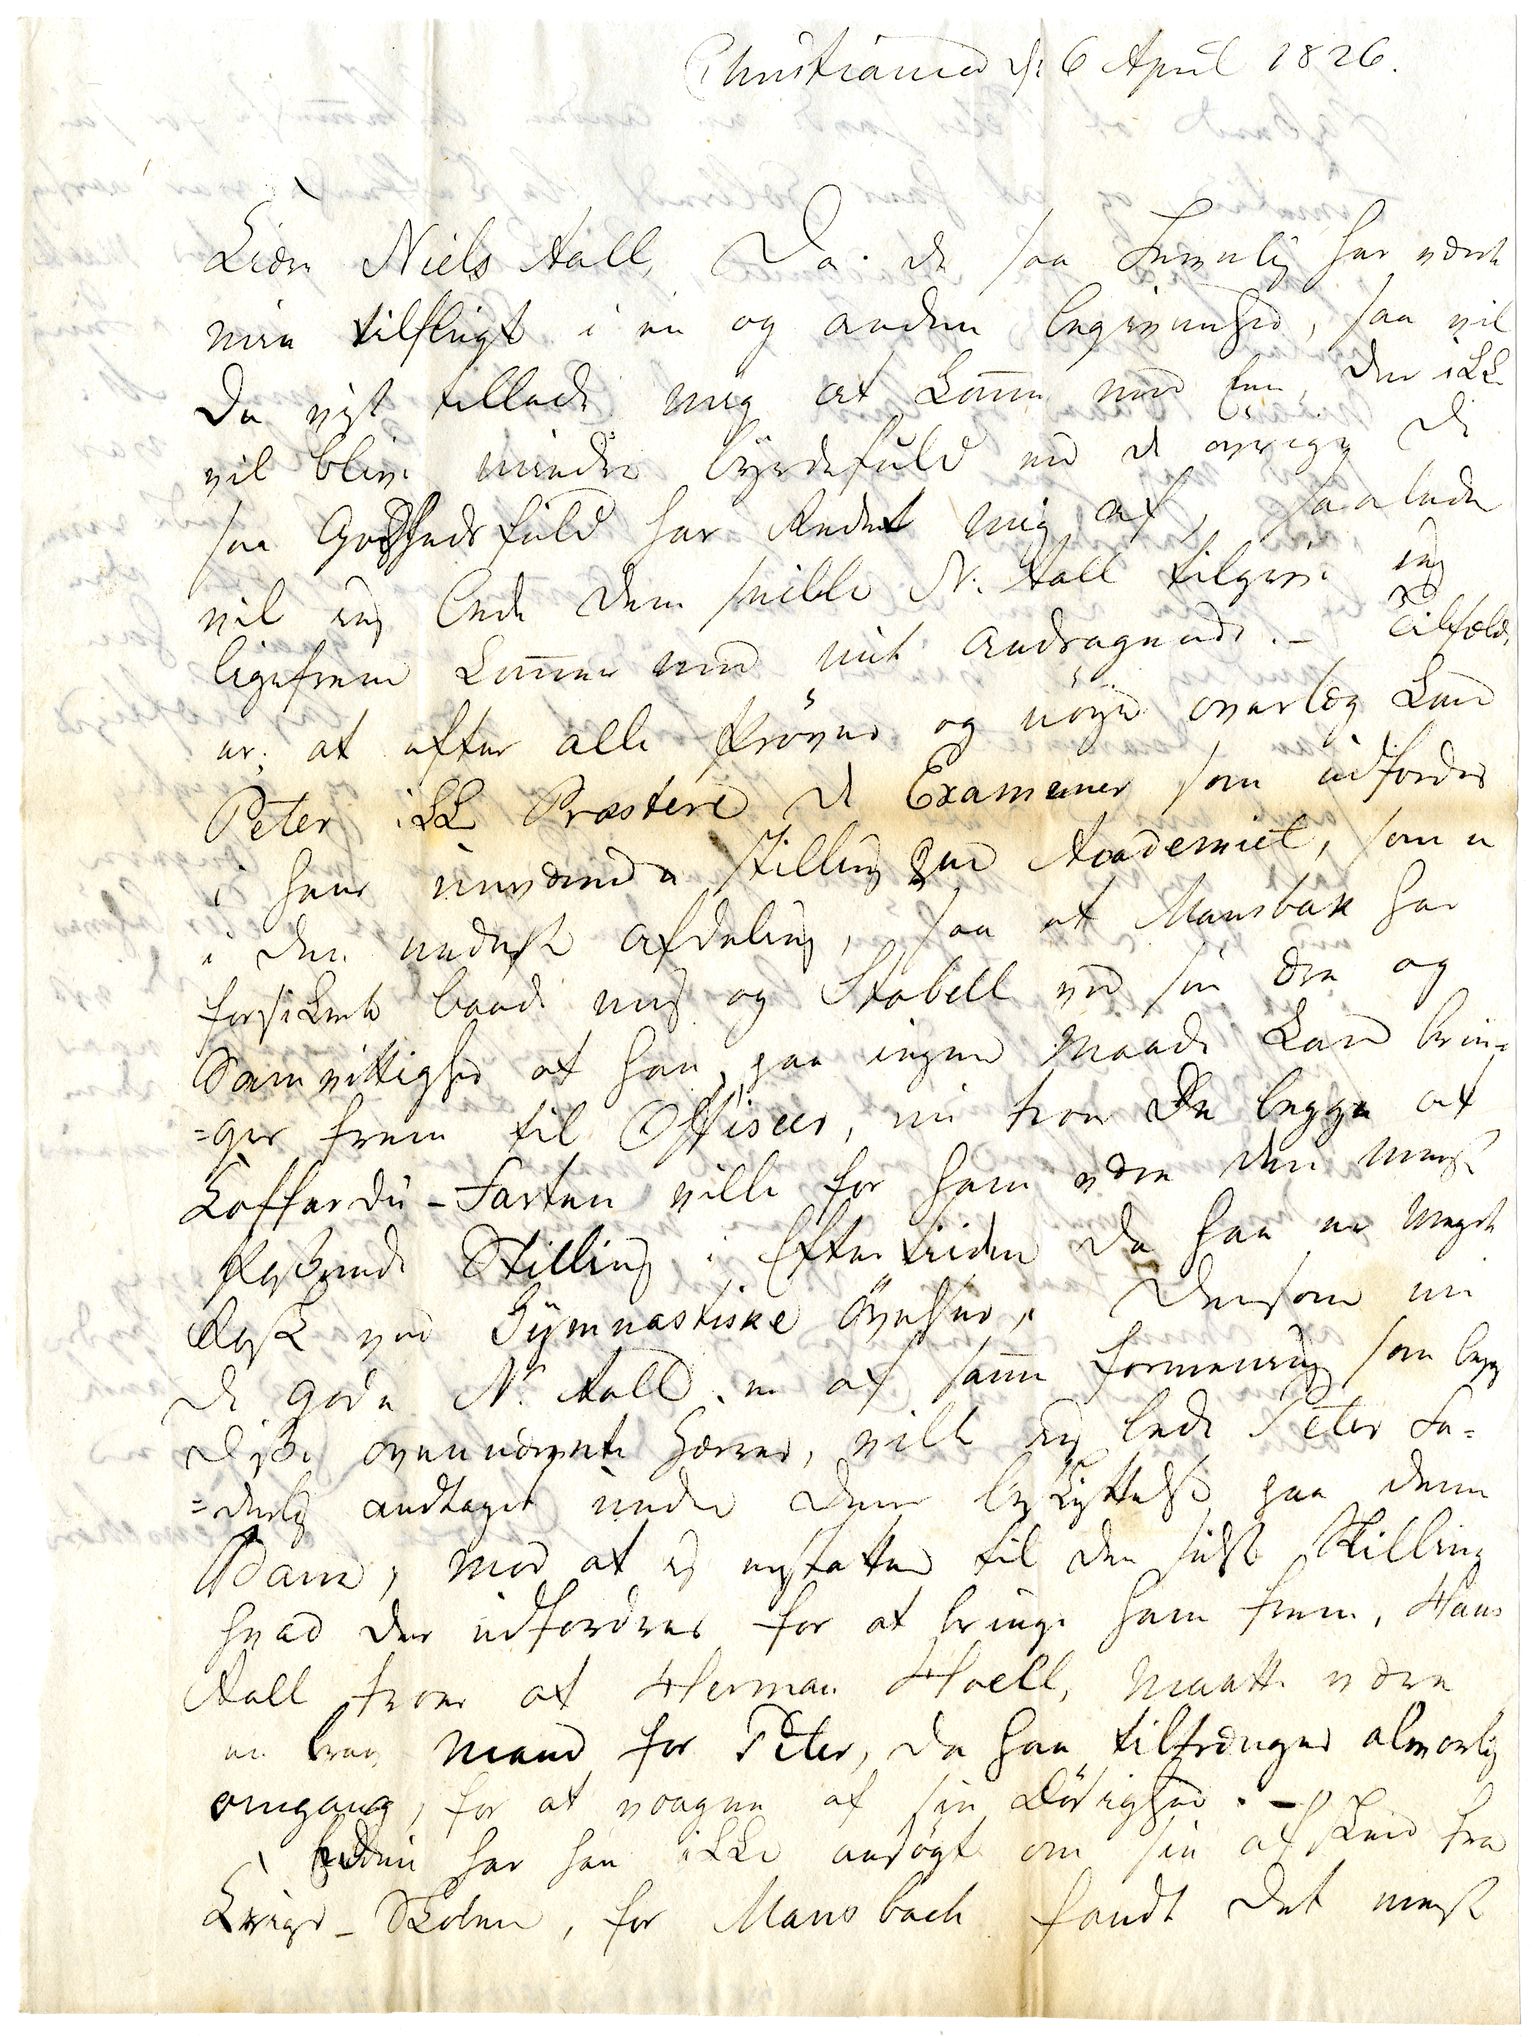 Christiania d: 6 April 1826.
Kiære Niels Aall, Da de saa  har været
mine tilflugt i en og anden begivenhed, saa vil
De vist tillade mig at komme med een, der ikke
vil blive mindre byrdefuld end de øvrige De
saa Godhedsfuld har Redet mig af, saaledes
vil ieg bede Dem snilde N. Aall tilgive ieg
ligefrem kommer med mit andragende. – Tilfældet
er; at efter alle Prøver og nøye overlæg kand
Peter ikke Præstere de Examener som udfordres
i hans nuværende Stilling ved Academiet, som er
i den nederste Afdeling, saa at Mansbak har
forsikret baade mig og Stabell ved sin ære og
Samvittighed at han paa ingen Maade kand brin=
=ges frem til Officeer, nu troer De begge at
Koffardi-Farten ville for ham være den meest
passende Stilling i Eftertiden da han er meget
Rask ved Gymnastiske øvelser, Dersom nu
De gode N. Aall er af samme formening som begge
disse ovennævnte Herrer, ville ieg bede Peter Fa=
=derlig andtaget under Deres beskyttelse paa denne
Bane, mod at ieg erstatter til den sidste Skilling
hvad der udfordres for at bringe ham frem, Hans
Aall troer at Herman Hoell, maatte være
en brav Mand for Peter, da han tiltrænger alvorlig
omgang, for at vaagne af sin Døsighed. –
Endnu har han ikke ansøgt om sin afsked fra
Krigs-Skolen, for Mansbach fandt det meest